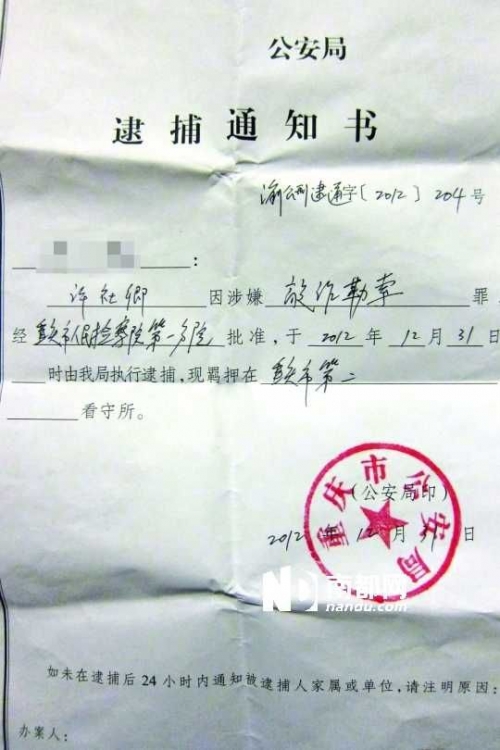 公安局
逮捕通知书
渝公刑逮通字〔2012〕204号
：
许社卿 因涉嫌 敲诈勒索 罪
经 重庆市人民检察院第一分院 批准，于 2012 年 12 月 31 日
时由我局执行逮捕，现羁押在 重庆市第二
看守所。
重庆市公安局
（公安局印）
2012 年 12 月 日
南都网
nandu.com
如未在逮捕后24小时内通知被逮捕人家属或单位，请注明原因：
办案人：